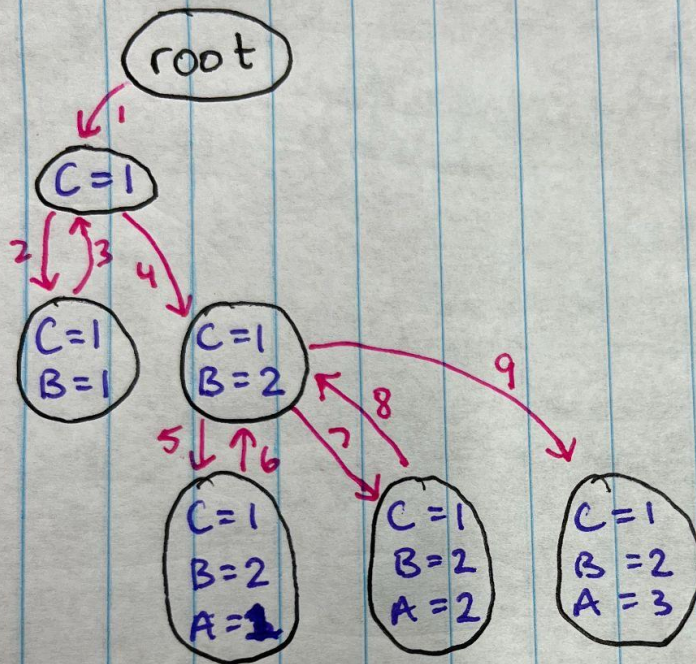 root
1
C=1
2
3
4
C=1
B=1
C=1
B=2
9
8
5
6
7
C=1
B=2
A=1
C=1
B=2
A=2
C=1
B=2
A=3